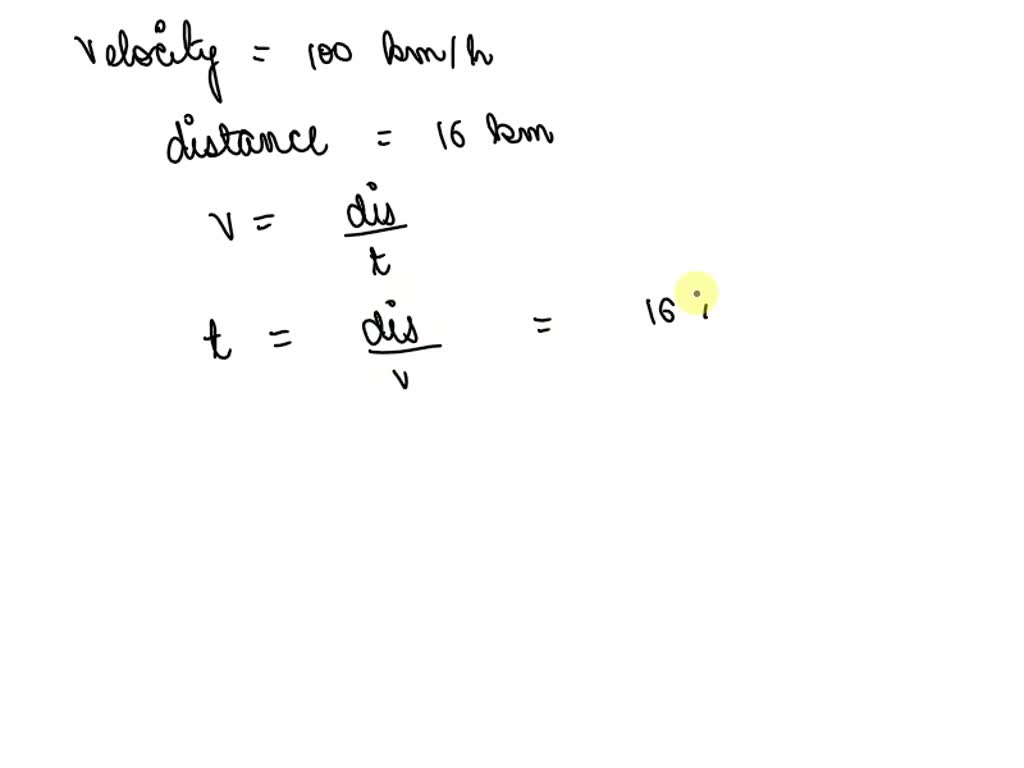 velocity = 100 km/h
distance = 16 km
v = dis/t
t = dis/v = 16